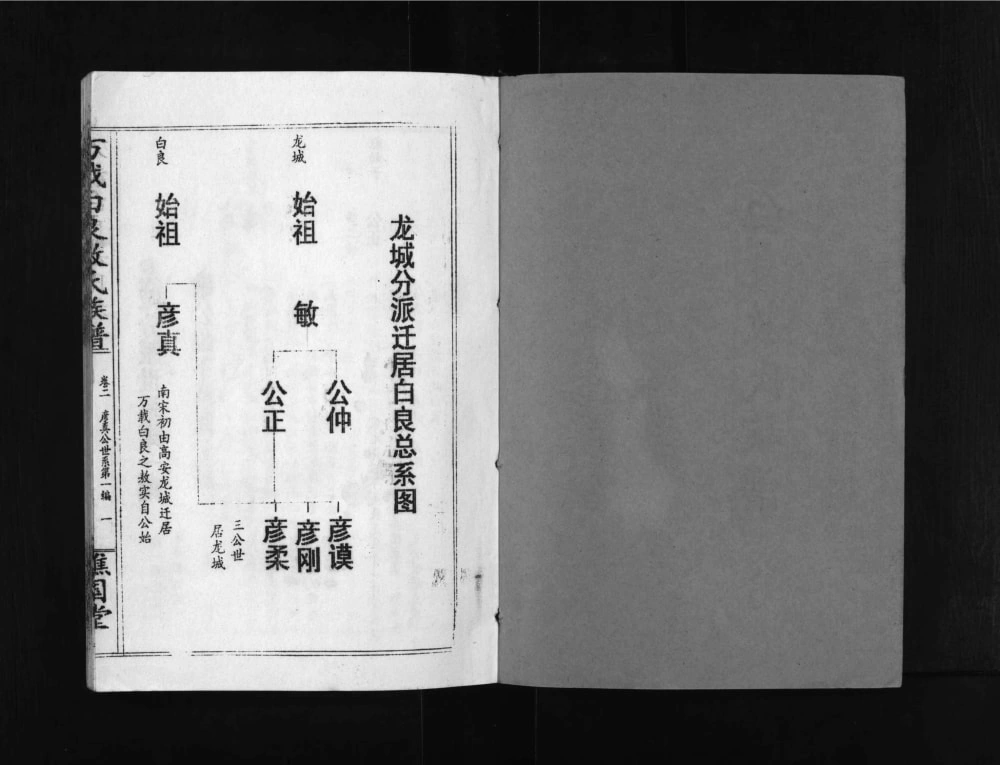 龙城分派迁居白良总系图
龙城
始祖
敏
公仲
公正
彦谟
彦刚
彦柔
三公世
居龙城
白良
始祖
彦真
南宋初由高安龙城迁居
万载白良之敖实自公始
万载白良敖氏族谱
卷二 彦真公世系第一编 一
谯国堂